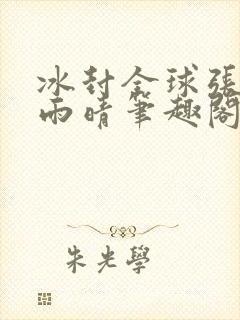 冰封全球張
雨晴筆趣閣
朱光學